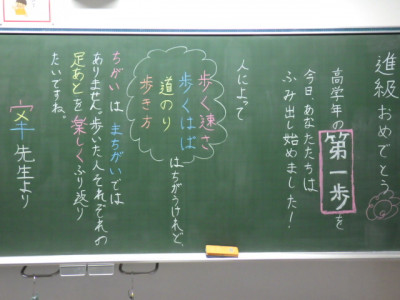 進級おめでとう
今日、あなたたちは
高学年の第一歩を
ふみ出し始めました！
人によって
歩く速さ
歩くはば
道のり
歩き方
はちがうけれど、
ちがいは まちがいでは
ありません。歩いた人それぞれの
足あとを楽しくふり返り
たいですね。
先生より